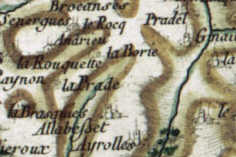 Brocanses
Senergues
le Rocq
Pradel
Andrieu
la Borie
la Rouquette
la Prade
la
aynon
la Brasquies
Allabe Set
Ayrolles
le
ieroux